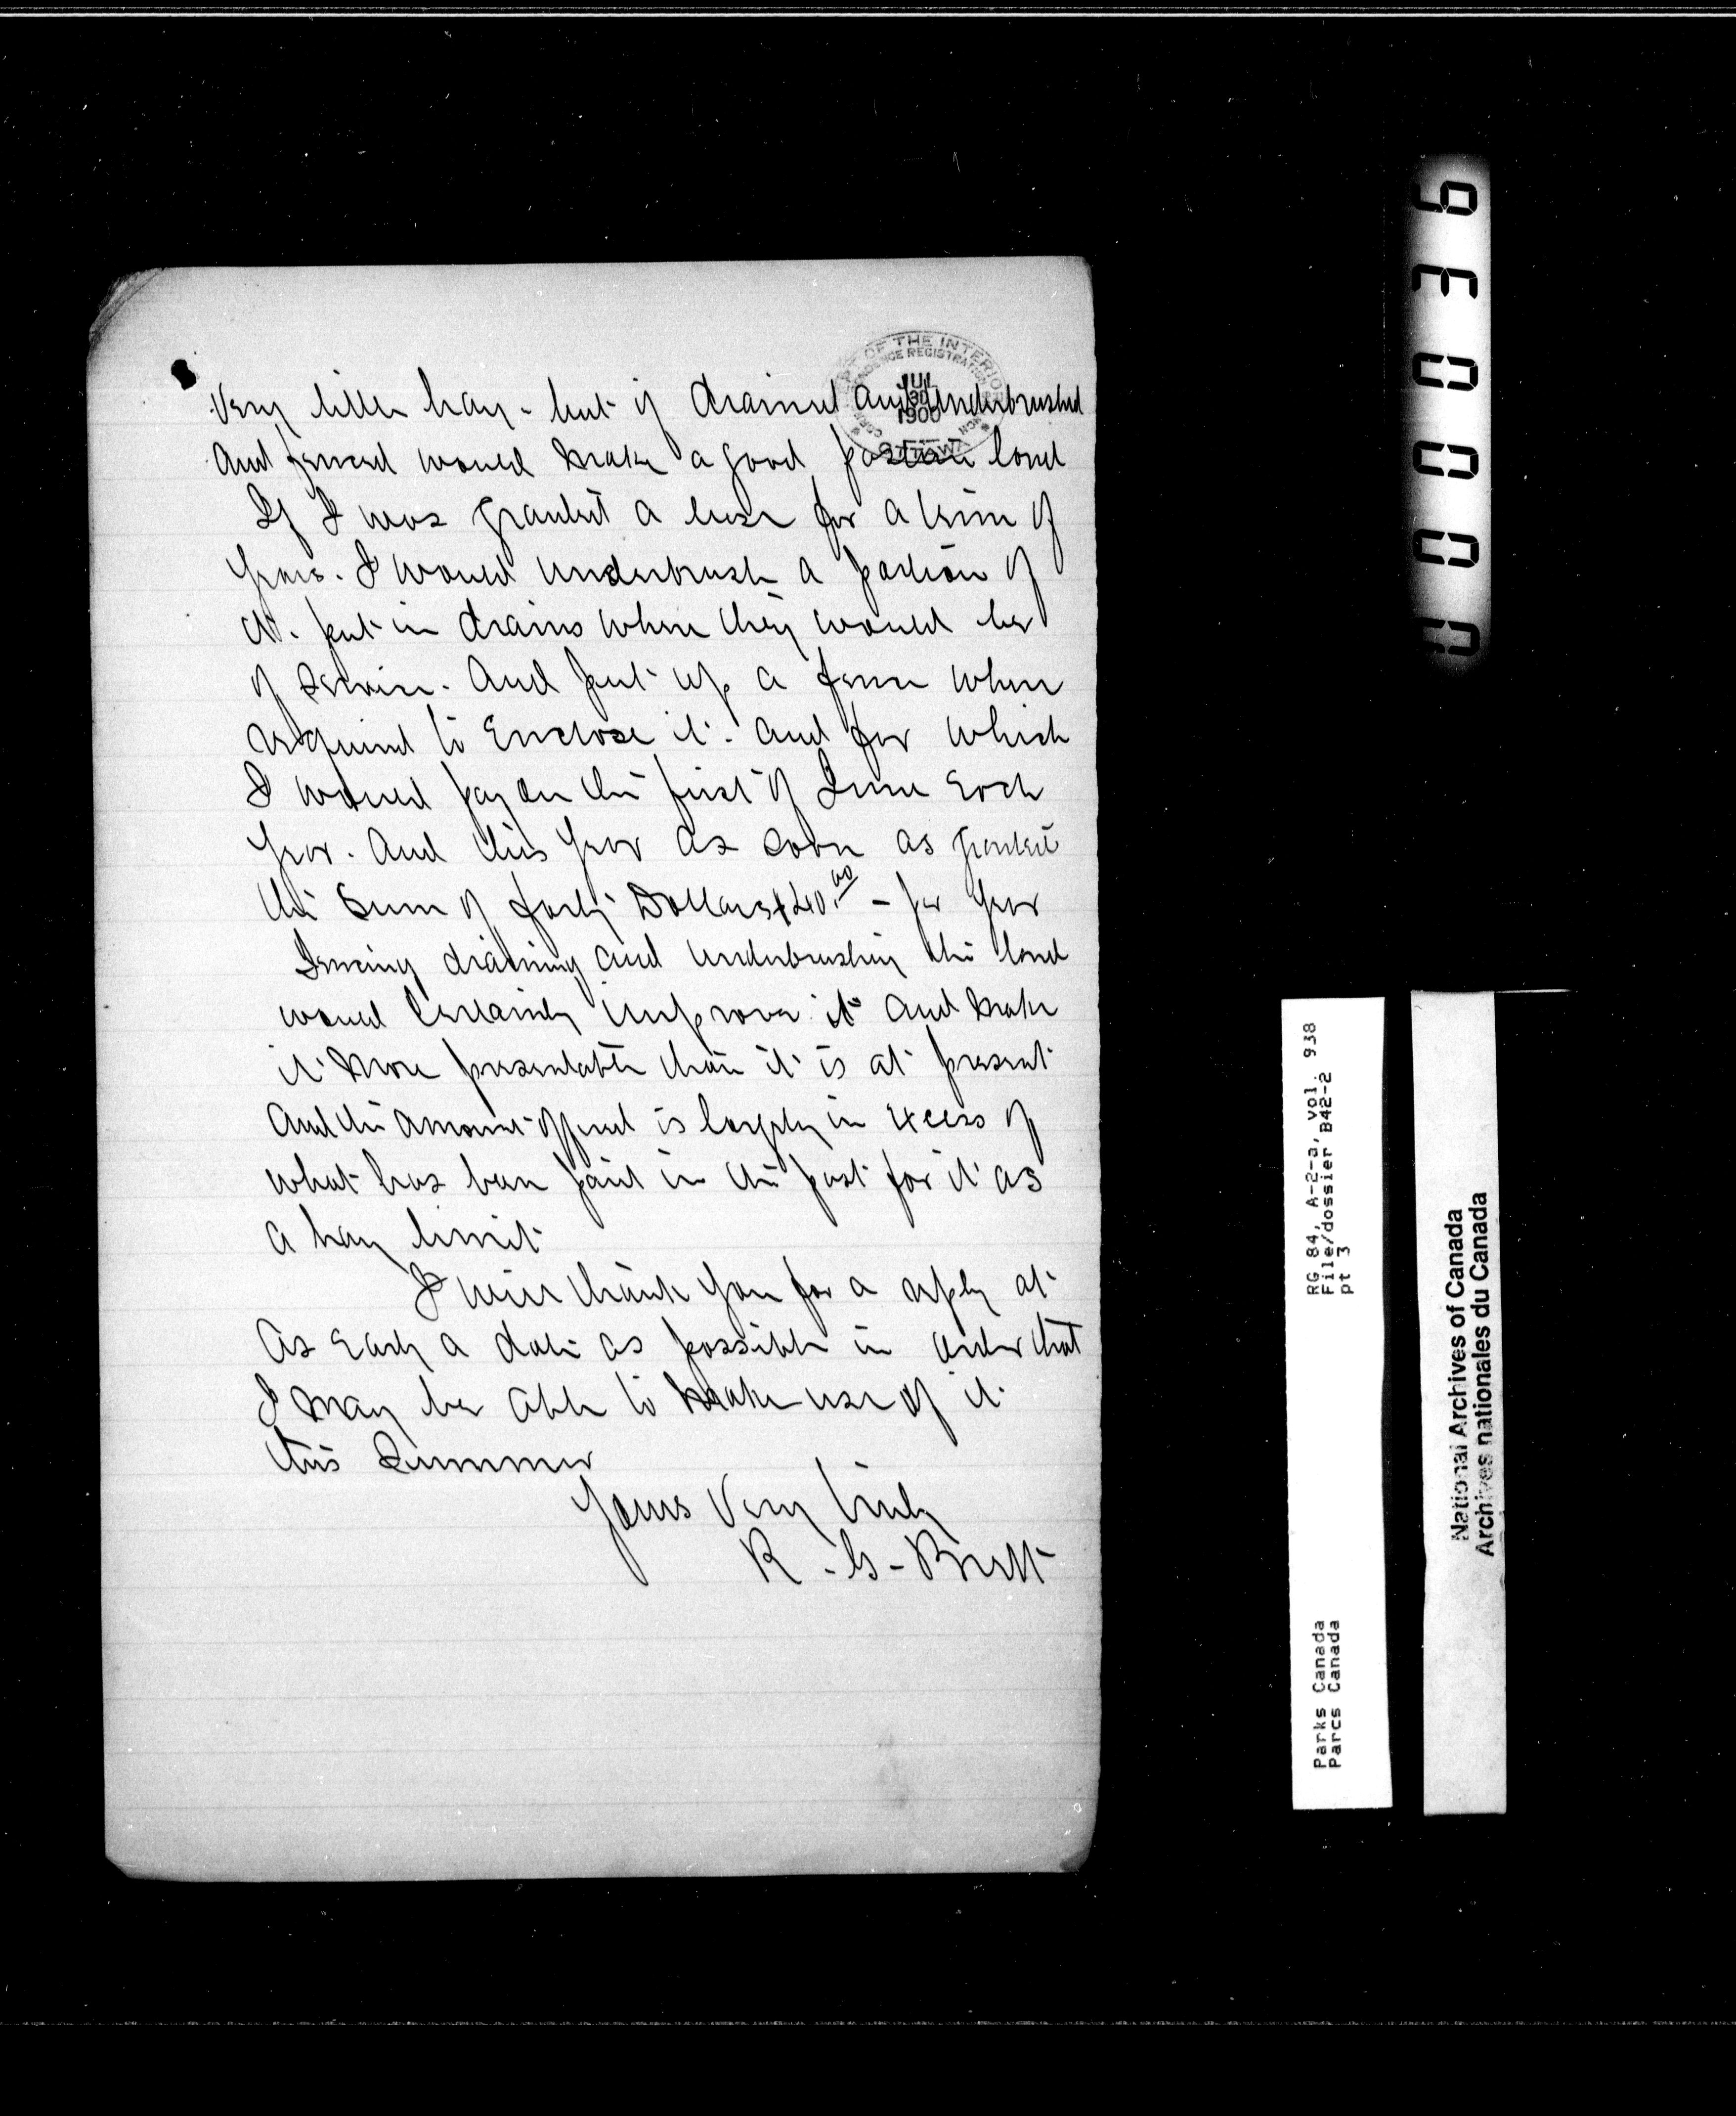 DEPT OF THE INTERIOR
CORRESPONDENCE REGISTRATION BRANCH
JUL
30
1900
OTTAWA
Very little hay - but if drained and Underbrushed
And fenced would make a good pasture land
If I was granted a lease for a term of
Years. I would Underbrush a portion of
it. put in drains where they would be
of Service. And put up a fence where
required to Enclose it. and for which
I would pay on the first of June Each
Year. And this Year as soon as granted
the Sum of forty Dollars $40.00 - per Year
Fencing draining and Underbrushing the land
would Certainly improve it and make
it more presentable than it is at present
And the amount offered is largely in Excess of
what has been paid in the past for it as
a hay limit
I will thank You for a reply at
as Early a date as possible in order that
I may be able to make use of it
this Summer
Yours Very truly
R. G. Brett
000036
RG 84, A-2-a, vol. 938
File/dossier B42-2
pt 3
Parks Canada
Parcs Canada
National Archives of Canada
Archives nationales du Canada